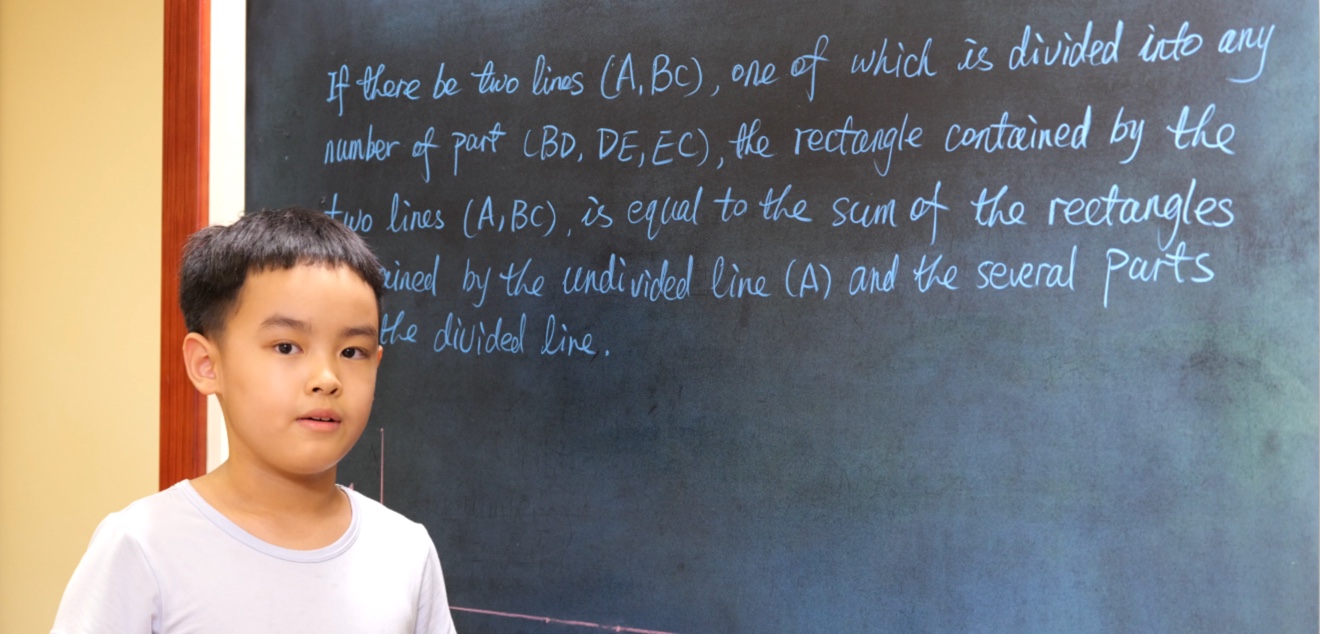 If there be two lines (A, BC), one of which is divided into any
number of part (BD, DE, EC), the rectangle contained by the
two lines (A, BC), is equal to the sum of the rectangles
by the undivided line (A) and the several parts
the divided line.